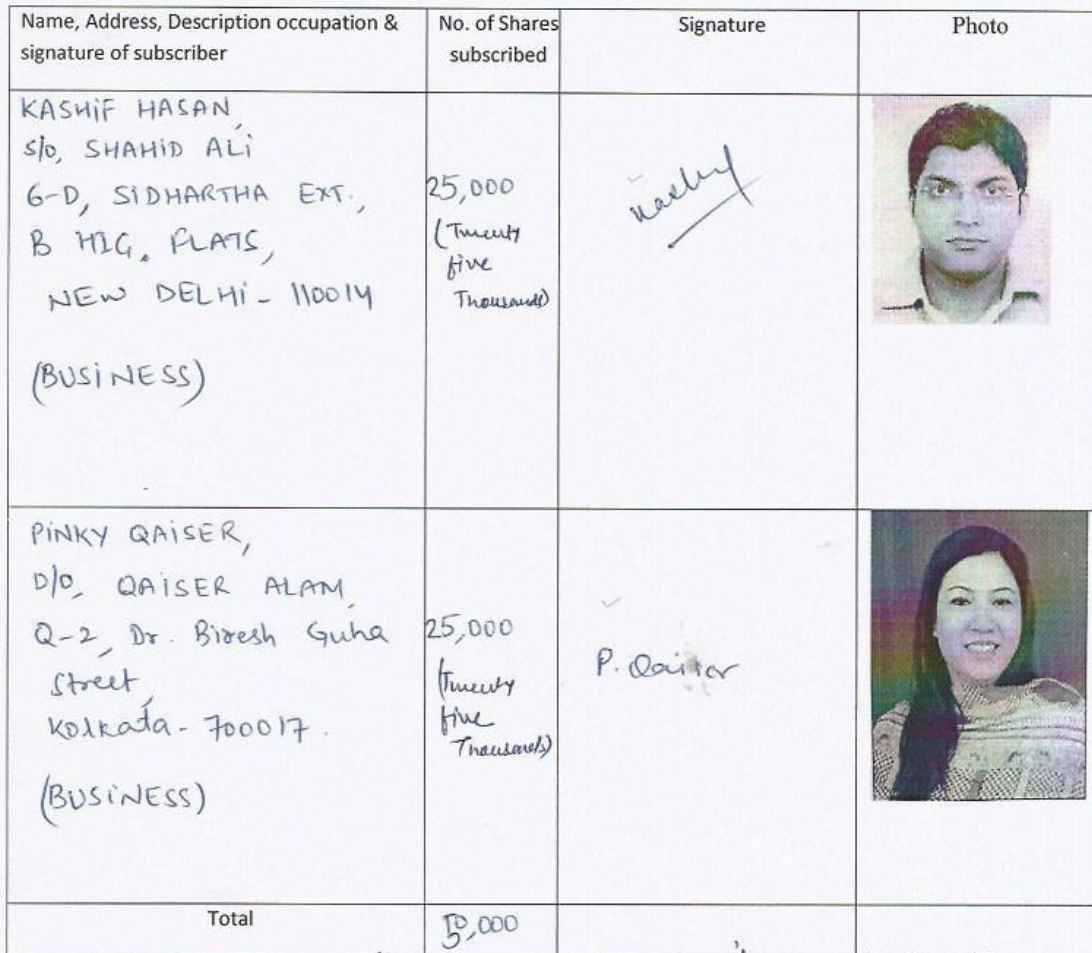 Name, Address, Description occupation &
signature of subscriber
No. of Shares
subscribed
Signature
Photo
KASHIF HASAN,
S/o, SHAHID ALI
6-D, SIDHARTHA EXT.,
B HIG. FLATS,
NEW DELHI - 110014
(BUSINESS)
25,000
(Twenty
five
Thousands)
PINKY QAISER,
D/O, QAISER ALAM,
Q-2, Dr. Biresh Guha
Street,
Kolkata - 700017.
(BUSINESS)
25,000
(Twenty
five
Thousands)
P. Qaiser
Total
50,000